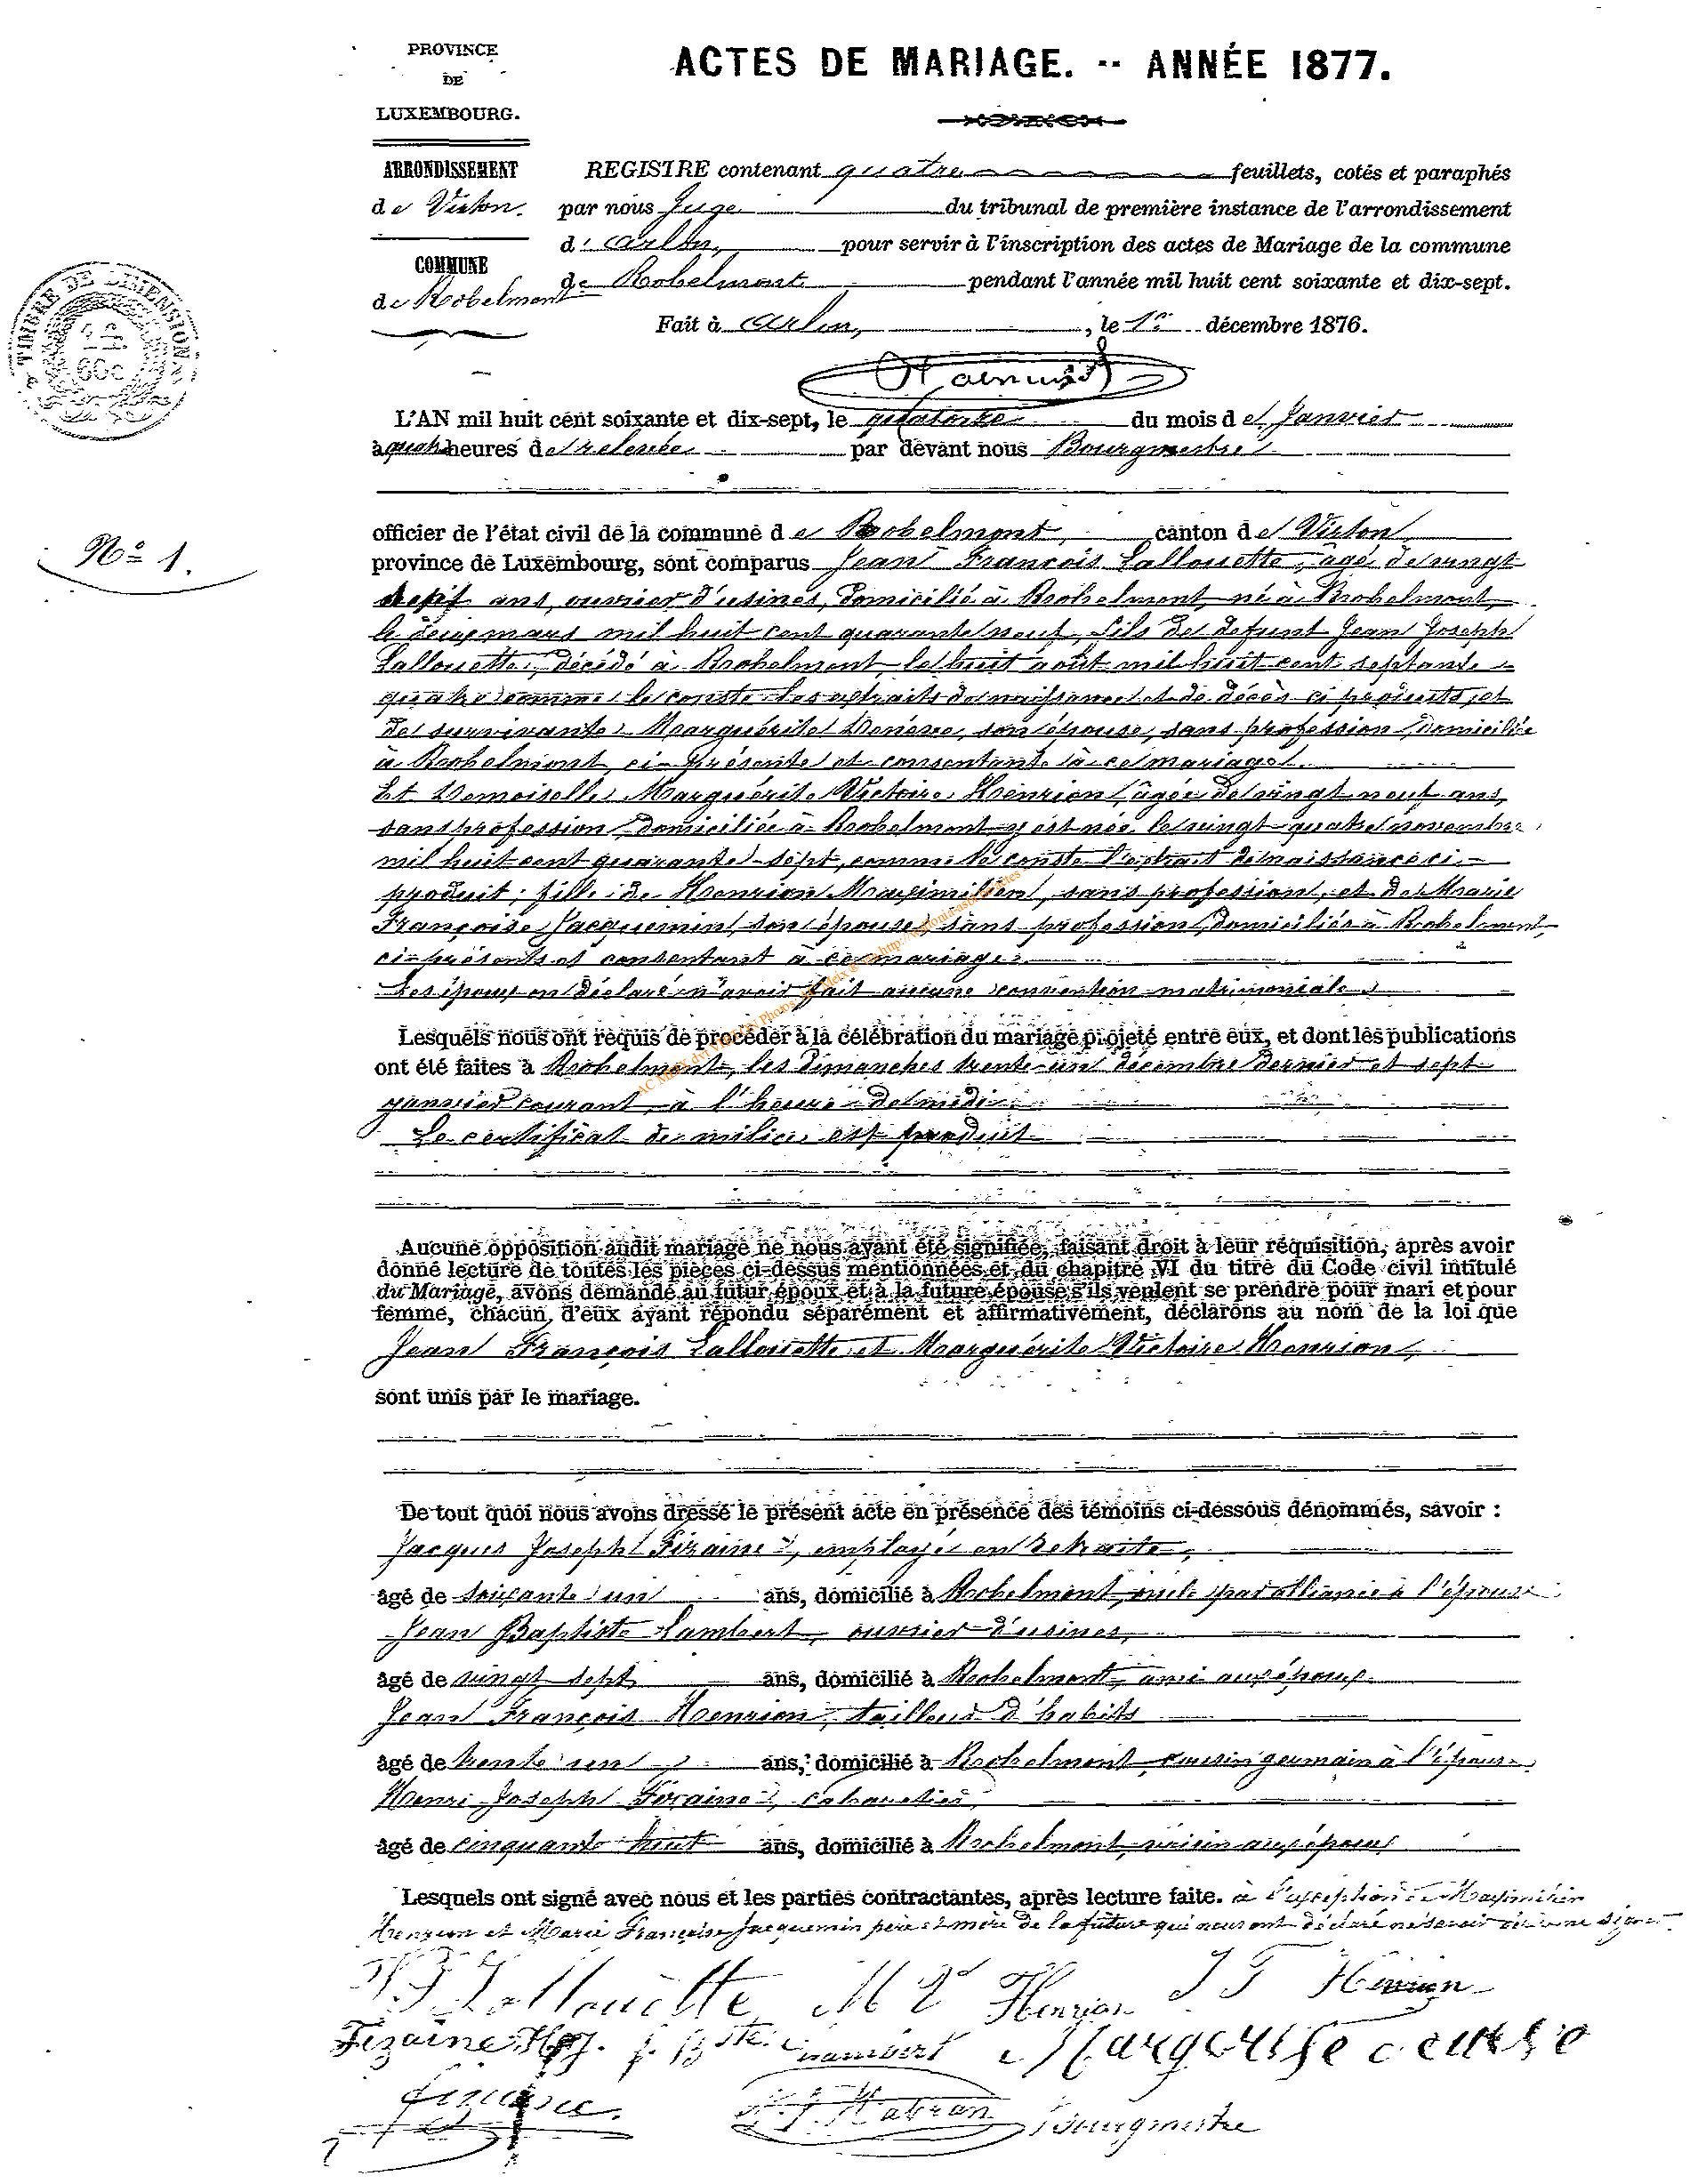 PROVINCE
DE
LUXEMBOURG.
ACTES DE MARIAGE. -- ANNÉE 1877.
ARRONDISSEMENT
de Virton.
COMMUNE
de Robelmont
REGISTRE contenant quatre feuillets, cotés et paraphés
par nous Juge du tribunal de première instance de l'arrondissement
d'Arlon, pour servir à l'inscription des actes de Mariage de la commune
de Robelmont pendant l'année mil huit cent soixante et dix-sept.
Fait à Arlon, , le 1er décembre 1876.
TIMBRE DE DIMENSION
60c
L'AN mil huit cent soixante et dix-sept, le quatorze du mois de Janvier
à heures de relevée par devant nous Bourgmestre
N° 1.
officier de l'état civil de la commune de Robelmont, canton de Virton,
province de Luxembourg, sont comparus Jean François Lallouette, âgé de vingt
sept ans, ouvrier d'usines, domicilié à Robelmont, né à Robelmont,
le deux mars mil huit cent quarante neuf, fils de defunt Jean Joseph
Lallouette, décédé à Robelmont, le huit août mil huit cent septante
quatre comme le conste les extraits de naissance et de décès ci produits, et
de survivante Marguérite son épouse, sans profession, domiciliée
à Robelmont, ci-présente et consentante à ce mariage.
Et Demoiselle Marguérite Victoire Henrion, âgée de vingt neuf ans,
sans profession, domiciliée à Robelmont, y est née le vingt-quatre novembre
mil huit cent quarante-sept, comme le conste l'extrait de naissance ci-
produit; fille de Henrion Maximilien, sans profession, et de Marie
Françoise Jacquemin, son épouse, sans profession, domiciliés à Robelmont,
ci-présents et consentant à ce mariage.
Les époux on déclaré n'avoir fait aucune convention matrimoniale
Lesquels nous ont requis de procéder à la célébration du mariage projeté entre eux, et dont les publications
ont été faites à Robelmont, les dimanches trente-un décembre dernier et sept
janvier courant, à l'heure de midi
Le certificat de milice est produit
Aucune opposition audit mariage ne nous ayant été signifiée, faisant droit à leur réquisition, après avoir
donné lecture de toutes les pièces ci-dessus mentionnées et du chapitre VI du titre du Code civil intitulé
du Mariage, avons demandé au futur époux et à la future épouse s'ils veulent se prendre pour mari et pour
femme, chacun d'eux ayant répondu séparément et affirmativement, déclarons au nom de la loi que
Jean François Lallouette et Marguérite Victoire Henrion,
sont unis par le mariage.
De tout quoi nous avons dressé le présent acte en présence des témoins ci-dessous dénommés, savoir :
Jacques Joseph Fizaine, employé en retraite,
âgé de soixante un ans, domicilié à Robelmont, oncle par alliance à l'épouse
Jean Baptiste Lambert, ouvrier d'usines,
âgé de vingt sept ans, domicilié à Robelmont, ami aux époux
Jean François Henrion, tailleur d'habits
âgé de trente un ans, domicilié à Robelmont, cousin germain à l'épouse
Henri Joseph Fizaine, cabaretier
âgé de cinquante huit ans, domicilié à Robelmont, voisin aux époux
Lesquels ont signé avec nous et les parties contractantes, après lecture faite. à l'exception de Maximilien
Henrion et Marie Françoise Jacquemin père et mère de la future qui nous ont déclaré ne savoir signer
JF Lallouette M V Henrion J F Henrion
Fizaine H J. J. Bte Lambert Margerite
Fizaine Bourgmestre